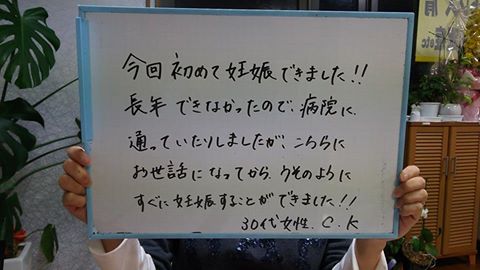 今回初めて妊娠できました!!
長年できなかったので、病院に
通っていたりしましたが、こちらに
お世話になってから、うそのように
すぐに妊娠することができました!!
30代女性. C.K
etc